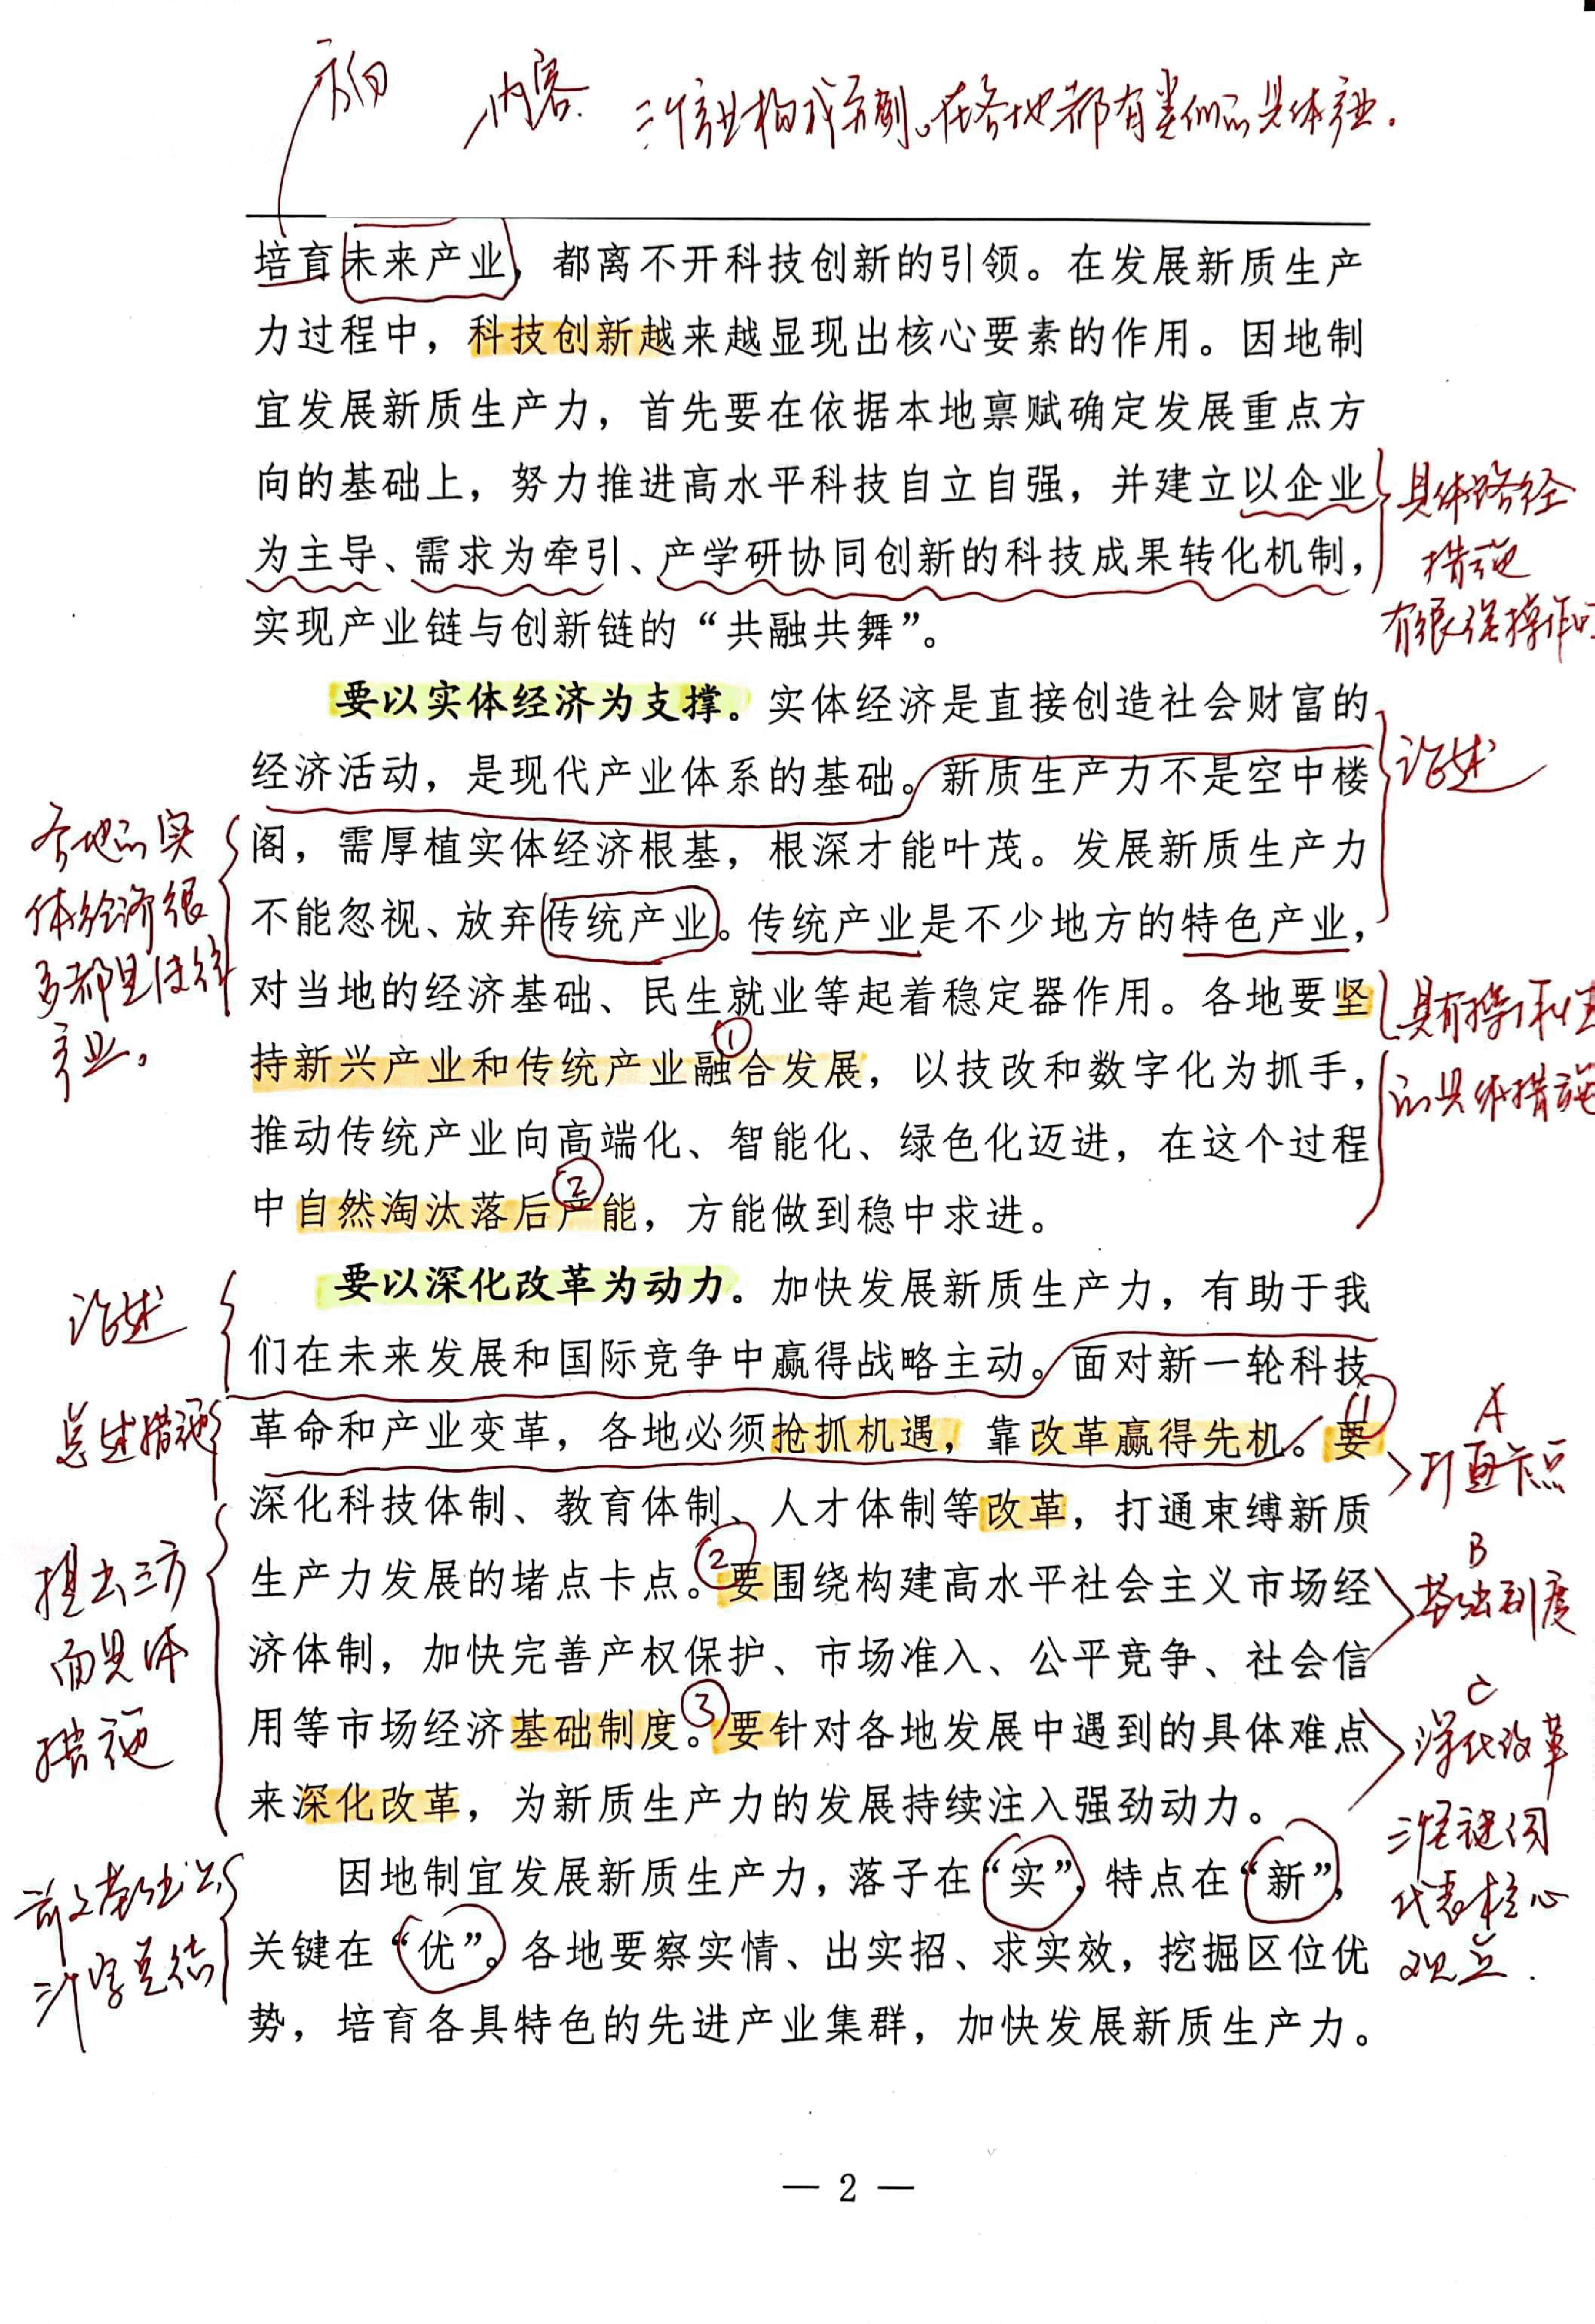 方向 内容. 三个产业构成示例。在各地都有类似的具体产业.
培育未来产业，都离不开科技创新的引领。在发展新质生产
力过程中，科技创新越来越显现出核心要素的作用。因地制
宜发展新质生产力，首先要在依据本地禀赋确定发展重点方
向的基础上，努力推进高水平科技自立自强，并建立以企业
为主导、需求为牵引、产学研协同创新的科技成果转化机制，
实现产业链与创新链的“共融共舞”。
具体路径
措施
有很强操作
要以实体经济为支撑。实体经济是直接创造社会财富的
经济活动，是现代产业体系的基础。新质生产力不是空中楼
阁，需厚植实体经济根基，根深才能叶茂。发展新质生产力
不能忽视、放弃传统产业。传统产业是不少地方的特色产业，
对当地的经济基础、民生就业等起着稳定器作用。各地要坚
持新兴产业和传统产业融合发展，以技改和数字化为抓手，
①
推动传统产业向高端化、智能化、绿色化迈进，在这个过程
中自然淘汰落后产能，方能做到稳中求进。
②
论述
各地的实
体经济很
多都是传统
产业。
具有操作性
的具体措施
要以深化改革为动力。加快发展新质生产力，有助于我
们在未来发展和国际竞争中赢得战略主动。面对新一轮科技
革命和产业变革，各地必须抢抓机遇，靠改革赢得先机。①要
深化科技体制、教育体制、人才体制等改革，打通束缚新质
生产力发展的堵点卡点。②要围绕构建高水平社会主义市场经
济体制，加快完善产权保护、市场准入、公平竞争、社会信
用等市场经济基础制度。③要针对各地发展中遇到的具体难点
来深化改革，为新质生产力的发展持续注入强劲动力。
论述
总述措施
提出三方
面具体
措施
A
打通卡点
B
基础制度
C
深化改革
三个关键词
代表核心
观点.
因地制宜发展新质生产力，落子在“实”，特点在“新”，
关键在“优”。各地要察实情、出实招、求实效，挖掘区位优
势，培育各具特色的先进产业集群，加快发展新质生产力。
三个字总结
— 2 —